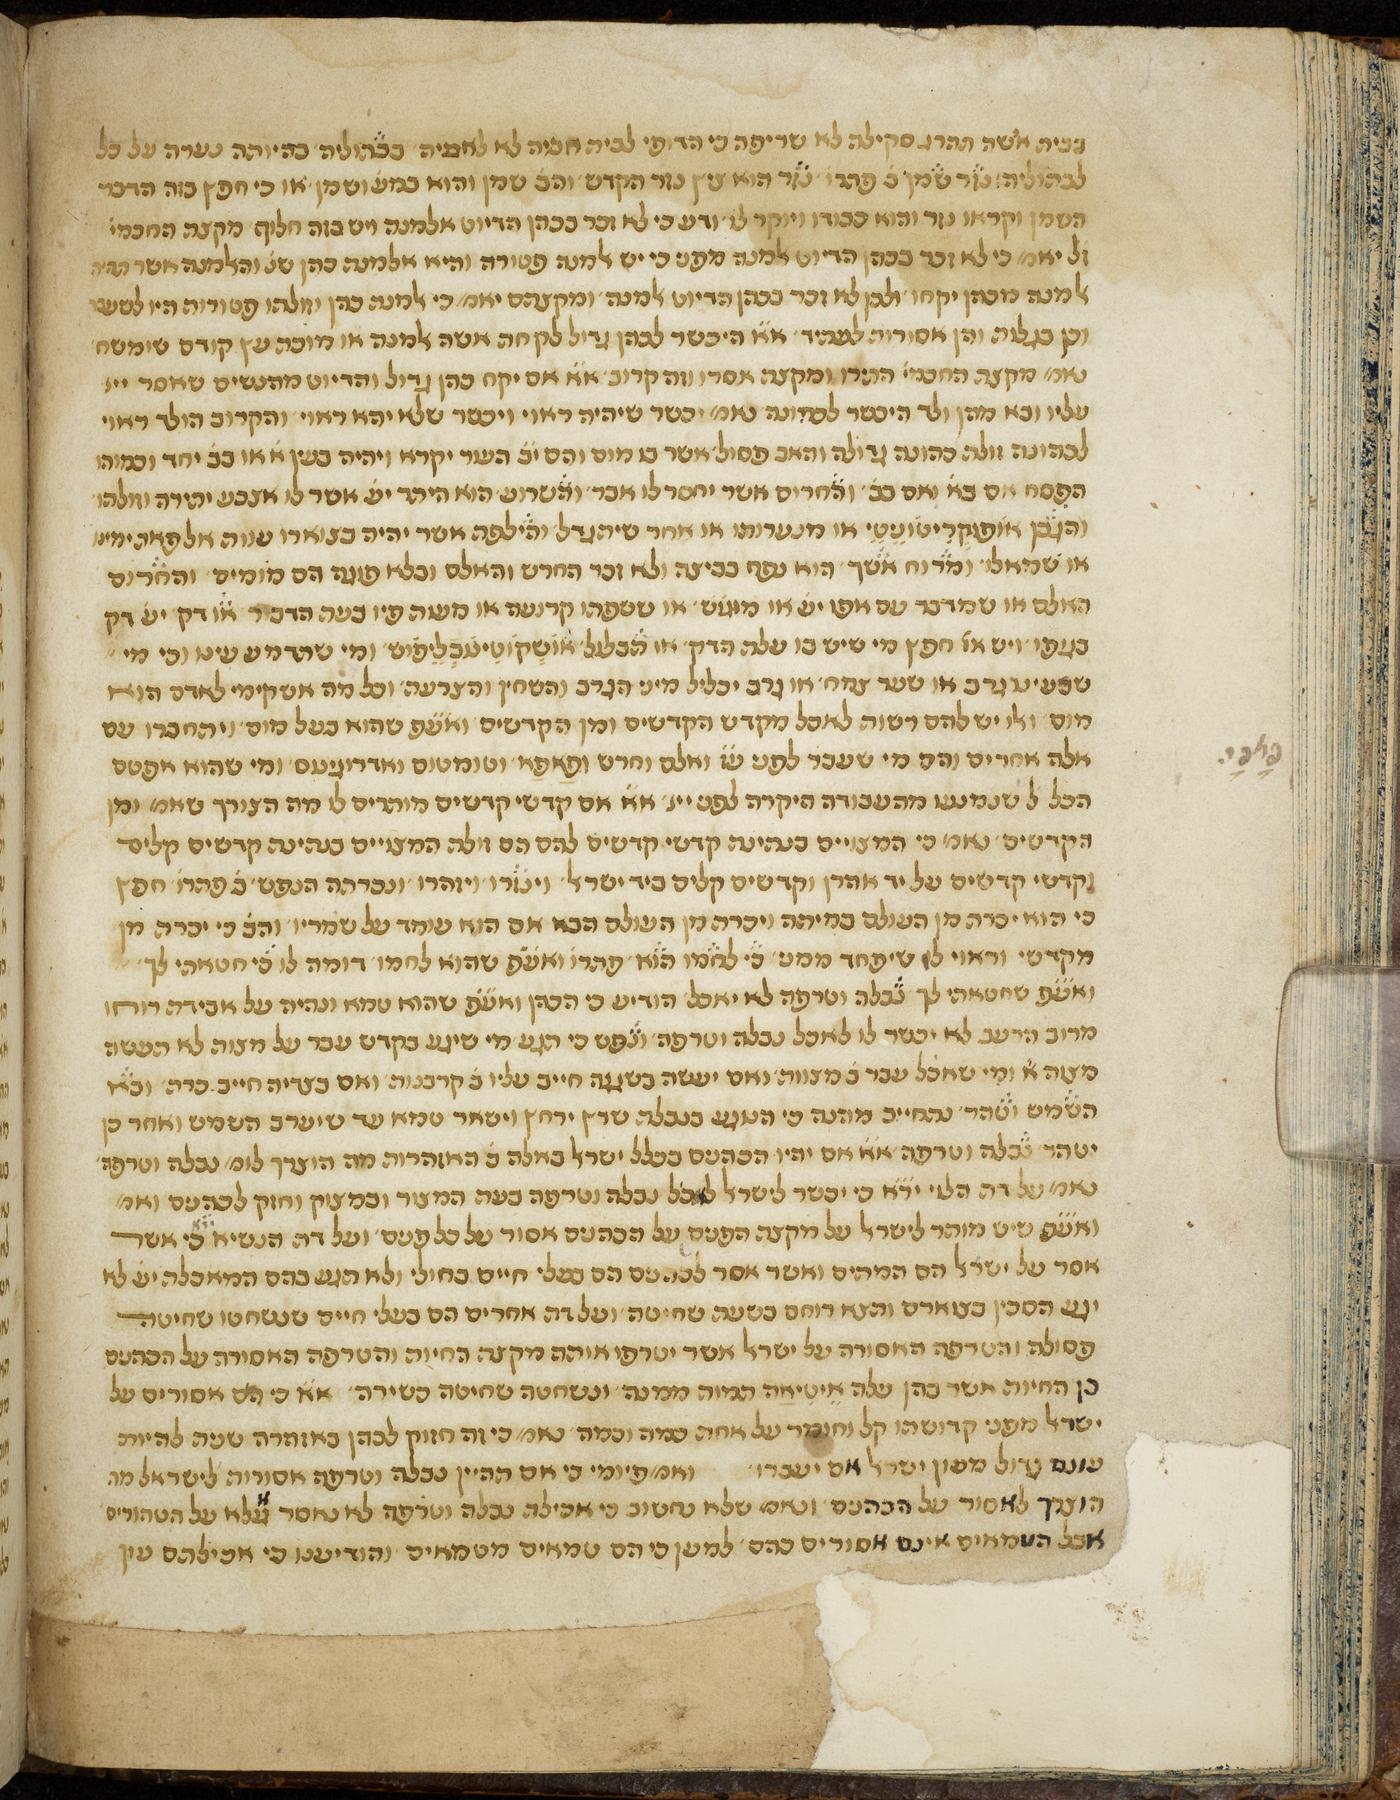 בבית אשה תהרג סקילה לא שריפה כי הדומי לבית חמיה לא לאמיה בבתוליה בהיותה נערה על כל
לבתוליה נזר שמן ב פתרו נזר הוא ציץ נזר הקדש והב שמן והוא כמע ושמן או כי חפץ בזה הדבר
השמן וקראו נזר והוא כבודו ויוקר לו ודע כי לא זכר בכהן הדיוט אלמנה ויש בזה חלוף מקצת החכמי
זל יאמ כי לא זכר בכהן הדיוט אלמנה מפני כי יש אלמנה פטורה והיא אלמנת כהן שנ והאלמנה אשר תהיה
אלמנה מכהן יקחו ולכן לא זכר בכהן הדיוט אלמנה ומקצתם יאמ כי אלמנת כהן וזולתו פטורות היו לשעבר
וכן בגלות והן אסורות לעתיד אא היכשר לכהן גדול לקחת אשה אלמנה או מוכת עץ קודם שימשח
נאמ מקצת החכמי התירו ומקצת אסרו וזה קרוב אא אם יקח כהן גדול והדיוט מהנשים שאסר ייי
עליו ובא מהן ולד היכשר לכהונה נאמ יכשר שיהיה ראוי ויכשר שלא יהא ראוי והקרוב הולד ראוי
לכהונה זולת כהונה גדולה והאב פסול אשר בו מום והם יב העור יקרא ויהיה בעין א או בב יחד וכמוהו
הפסח אם בא ואם בב והחרום אשר יחסר לו אבר והשרוע הוא היתר יע אשר לו אצבע יתירה וזולתו
והגבן או מנערותו או אחר שיתגדל והילפת אשר יהיה בצוארו עוות אל פאת ימינו
או שמאלו ומרוח אשך הוא נפח בביצה ולא זכר החרש והאלם ובלא פוגה הם מומים והחרום
האלם או שמדבר עם אפו יע או או ששפתו קרועה או מעוה פיו בעת הדבור או דק יע דק
בגופו ויש או חפץ מי שיש בו עלת הדק או תבלול ומי שתדמע עינו וכי מי
שבעינו גרב או שער צמח או גרב יכליל מיני הגרב והשחין והצרעת וכל מה אשקימי לאדם הוא
מום ואו יש להם רשות לאכל מקדש הקדשים ומן הקדשים ואעפ שהוא בעל מום ויתחברו עם
אלה אחרים והם מי שעבר לפני עז ואלם וחרש ופאפא וטומטום ואדרוגינוס ומי שהוא אפטם
הכל ל שנמנעו מהעבודה היקרה לפני ייי אא אם קדשי קדשים מותרים לו מה הצורך שאמ ומן
הקדשים נאמ כי המצויים בנתינת קדשי קדשים להם הם זולת המצויים בנתינת קדשים קלים
וקדשי קדשים על יד אהרן וקדשים קלים ביד ישראל וינזרו ויזהרו ונכרתה הנפש ב פתרו חפץ
כי הוא יכרת מן העולם במיתה ויכרת מן העולם הבא אם הוא עומד על שמריו והב כי יכרת מן
מקדשי וראוי לו שיפחד ממני כי לחמו הוא פתרו ואעפ שהוא לחמו דומה לו כי חטאתי לך
ואעפ שחטאתי לך נבלה וטרפה לא יאכל הודיע כי הכהן ואעפ שהוא טמא ונהיה על אבידת רוחו
מרוב הרעב לא יכשר לו לאכל נבלה וטרפה ונפש כי תגע מי שיגע בקדש עבר על מצות לא תעשה
מצוה א ומי שאכל עבר ב מצוות ואם יעשה בשגגה חייב עליו ב קרבנות ואם בצדיה חייב כרת ובא
השמש וטהר נתחייב מזה כי הנוגע בנבלת שרץ ירחץ וישאר טמא עד שיערב השמש ואחר כן
יטהר נבלה וטרפה אא אם יהיו הכהנים בכלל ישראל באלה ב האזהרות מה הוצרך לומ נבלה וטרפה
נאמ על דת הלוי ירא כי יכשר לישראל לאכל נבלה וטרפה בעת המצור ובמצוק וחזק לכהנים ואמ
ואעפ שיש מותר לישראל על מקצת הפנים על הכהנים אסור על כל פנים ועל דת הנשיא ירא כי אשר
אסר על ישראל הם המתים ואשר אסר לכהנים הם בעלי חיים בחולי ולא תגע בהם המאכלת יע לא
יגע הסכין בצוארם ותצא רוחם בשעת שחיטה ועל דת אחרים הם בעלי חיים שנשחטו שחיטה
פסולה והטרפה האסורה על ישראל אשר יטרפו אותה מקצת החיות והטרפה האסורה על הכהנים
כן החיות אשר בהן עלה תמות ממנה ונשחטה שחיטה כשירה אא כי הם אסורים על
ישראל מפני קדושתו קל וחומר על אחת כמה וכמה נאמ כי זה חזוק לכהן באזהרה שניה להיות
עונם גדול מעון ישראל אם יעברו ואמ פיומי כי אם תהיין נבלה וטרפה אסורות לישראל מה
הוצרך לאסור על הכהנים ונאמ שלא נחשוב כי אכילת נבלה וטרפה לא נאסר אלא על הטהורים
אבל הטמאים אינם אסורים בהם למען כי הם טמאים מטמאים והודיענו כי אכילתם עון